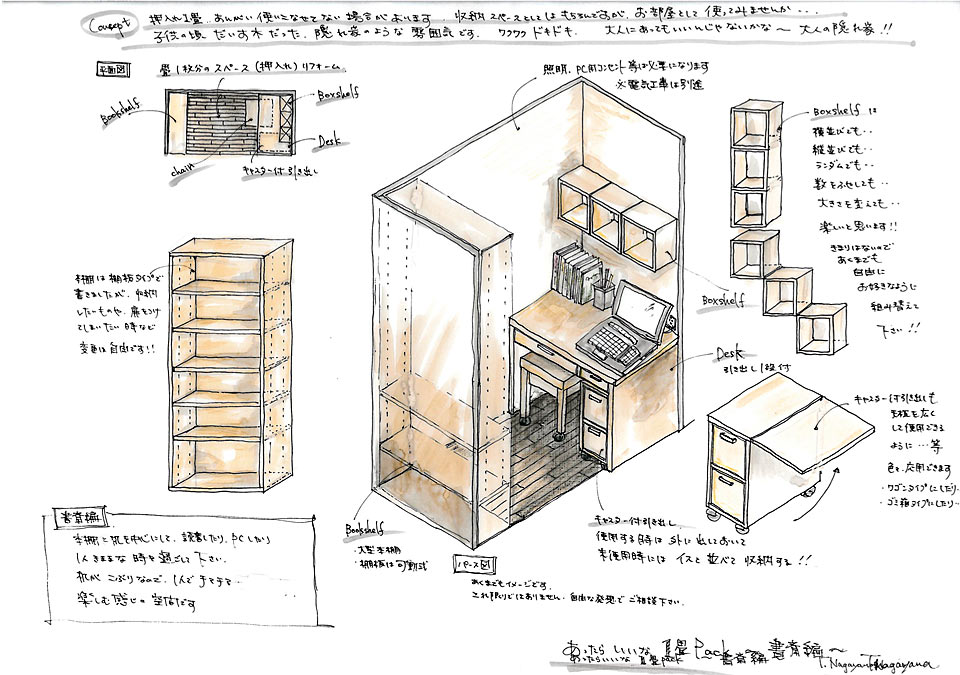 Concept
押入れ1畳、あんがい使いこなせてない場合があります。収納スペースとしてはもちろんですが、お部屋として使ってみませんか...
子供の頃だいすきだった、隠れ家のような雰囲気です。ワクワクドキドキ、大人にあってもいいんじゃないかな〜大人の隠れ家!!
平面図
畳1枚分のスペース(押入れ)リフォーム。
Bookshelf
Boxshelf
Desk
chain
キャスター付引き出し
照明、PC用コンセント等は必要になります
※電気工事は別途
Boxshelf は
横並びでも・・
縦並びでも・・
ランダムでも・・
数をふやしても・・
大きさを変えても・・
楽しいと思います!!
きまりはないので
あくまでも
自由に
お好きなように
組み替えて
下さい!!
本棚は棚板タイプで
書きましたが、収納
したいものや、扉をつけ
てしまいたい時など
変更は自由です!!
Boxshelf
Desk
引き出し1段付
キャスター付引き出しも
面積を広く
して使用できる
ように…等
色々、応用できます
・ワゴンタイプにしたり・・
・ゴミ箱タイプにしたり・・
Bookshelf
・大型本棚
・棚板は可動式
キャスター付引き出し
使用する時は外に出しておいて
未使用時にはイスと並べて収納する!!
パース図
あくまでもイメージです。
これ限りではありません。自由な発想でご相談下さい。
書斎編
本棚と机を中心にして、読書したり、PCしたり
1人きままな時を過ごして下さい。
机がこぶりなので、1人で
楽しむ感じの空間です
あったらいいな 畳Pack 〜書斎編〜
あったらいいな 畳pack 書斎編
T. Nagayama